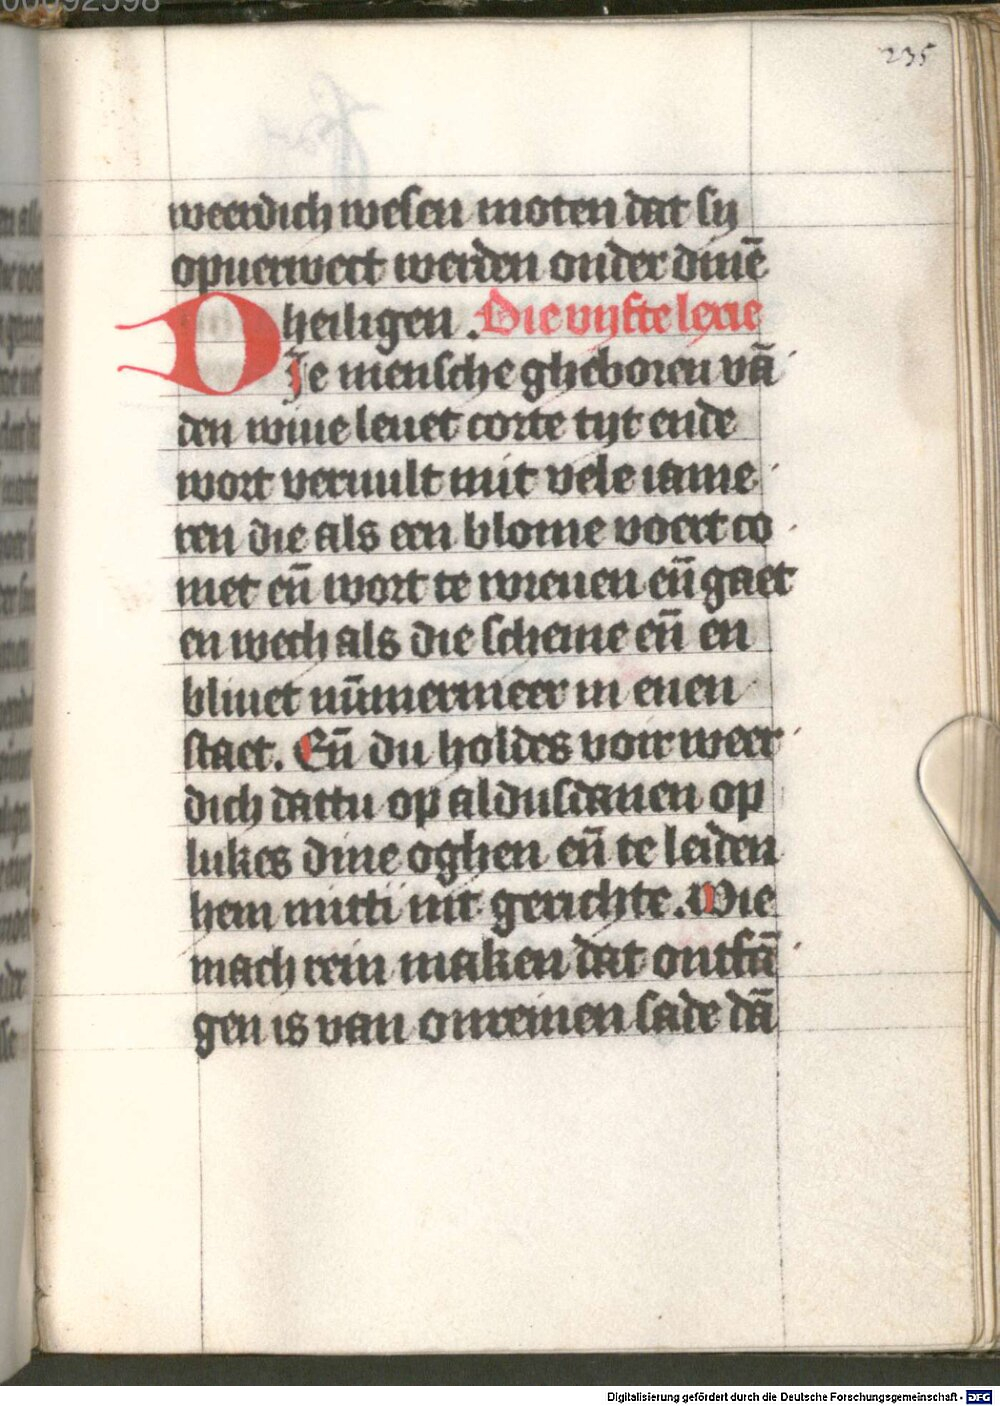 00092598
235
weerdich wesen moten dat sij
opuerwect werden onder dinē
heiligen . Die vijfte lexie
DJe mensche gheboren vā
den wiue leuet corte tijt ende
wort veruult mit vele iame
ren die als een blome voert co
met eñ wort te wreuen eñ gaet
en wech als die scheme eñ en
bliuet nūmermeer in enen
staet. Eñ du holdes voir weer
dich dattu op aldusdanen op
lukes dine oghen eñ te leiden
hem mitti int gerichte. Wie
mach rein maken dat ontfā
gen is van onreinen sade dā
Digitalisierung gefördert durch die Deutsche Forschungsgemeinschaft - DFG